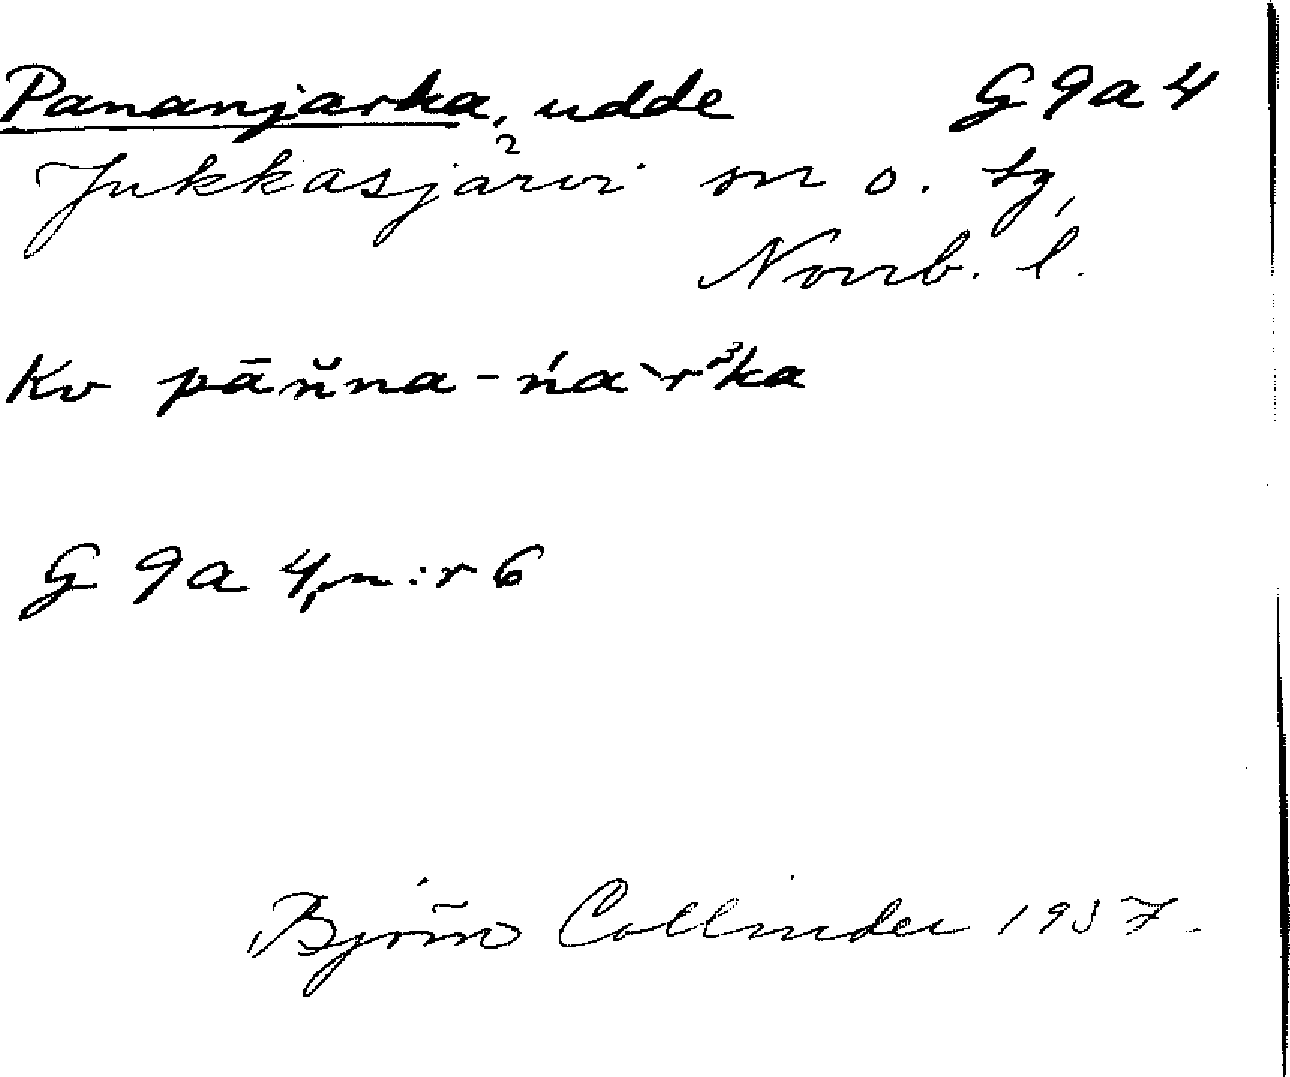 Pananjarka, udde G 9a 4
Jukkasjärvi sn o. tg,
Norrb. l.
Kv pāňna-ńa`rᵌka
G 9a 4, n:r 6
Björn Collinder 1957.